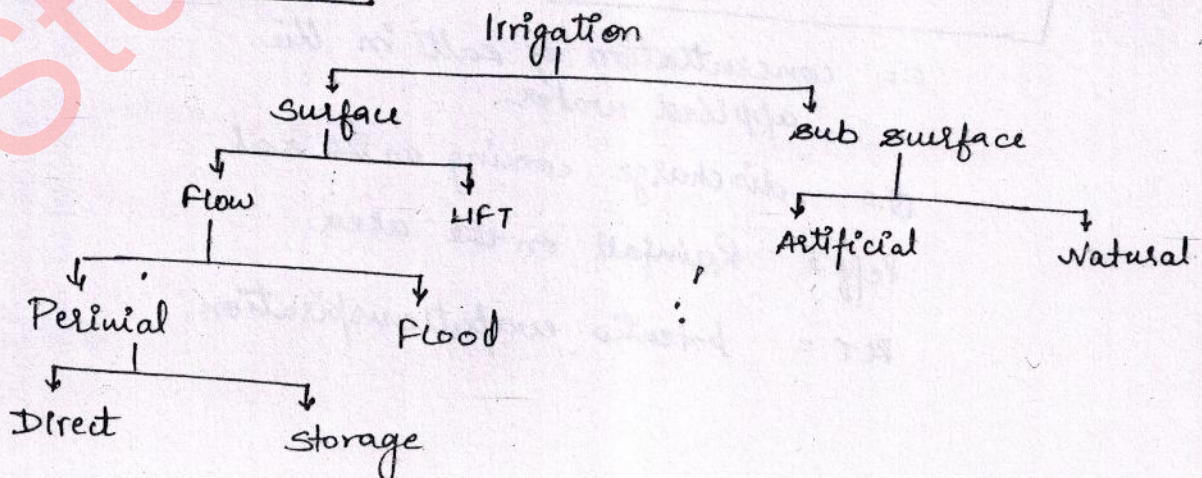 Irrigation
Surface
sub surface
Flow
LIFT
Artificial
Natural
Perinial
Flood
Direct
Storage